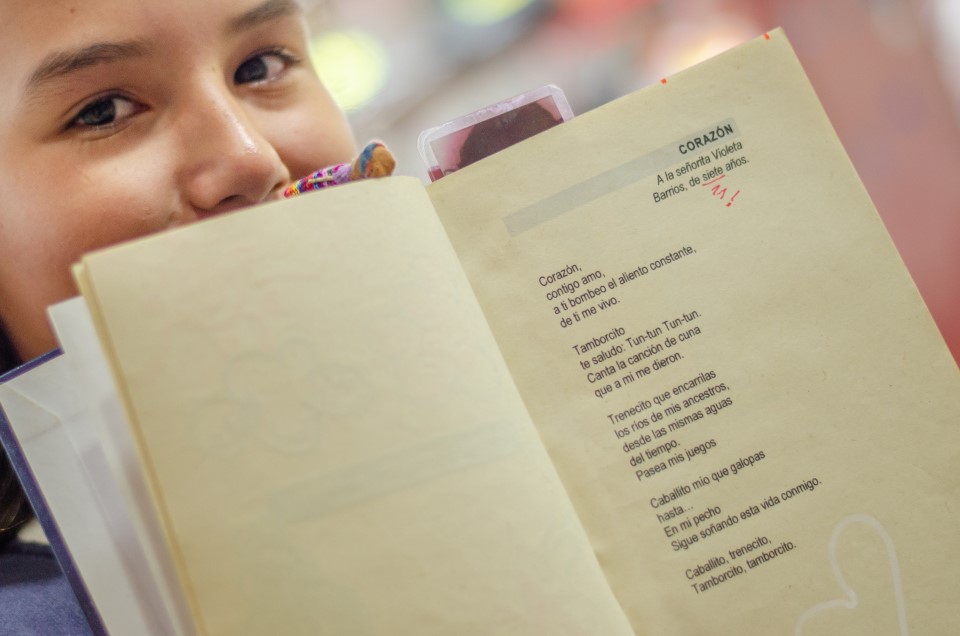 CORAZÓN
A la señorita Violeta
Barrios, de siete años.
Corazón,
contigo amo,
a ti bombeo el aliento constante,
de ti me vivo.
Tamborcito
te saludo: Tun-tun Tun-tun.
Canta la canción de cuna
que a mi me dieron.
Trenecito que encarrilas
los ríos de mis ancestros,
desde las mismas aguas
del tiempo.
Pasea mis juegos
Caballito mío que galopas
hasta...
En mi pecho
Sigue soñando esta vida conmigo.
Caballito, trenecito,
Tamborcito, tamborcito.